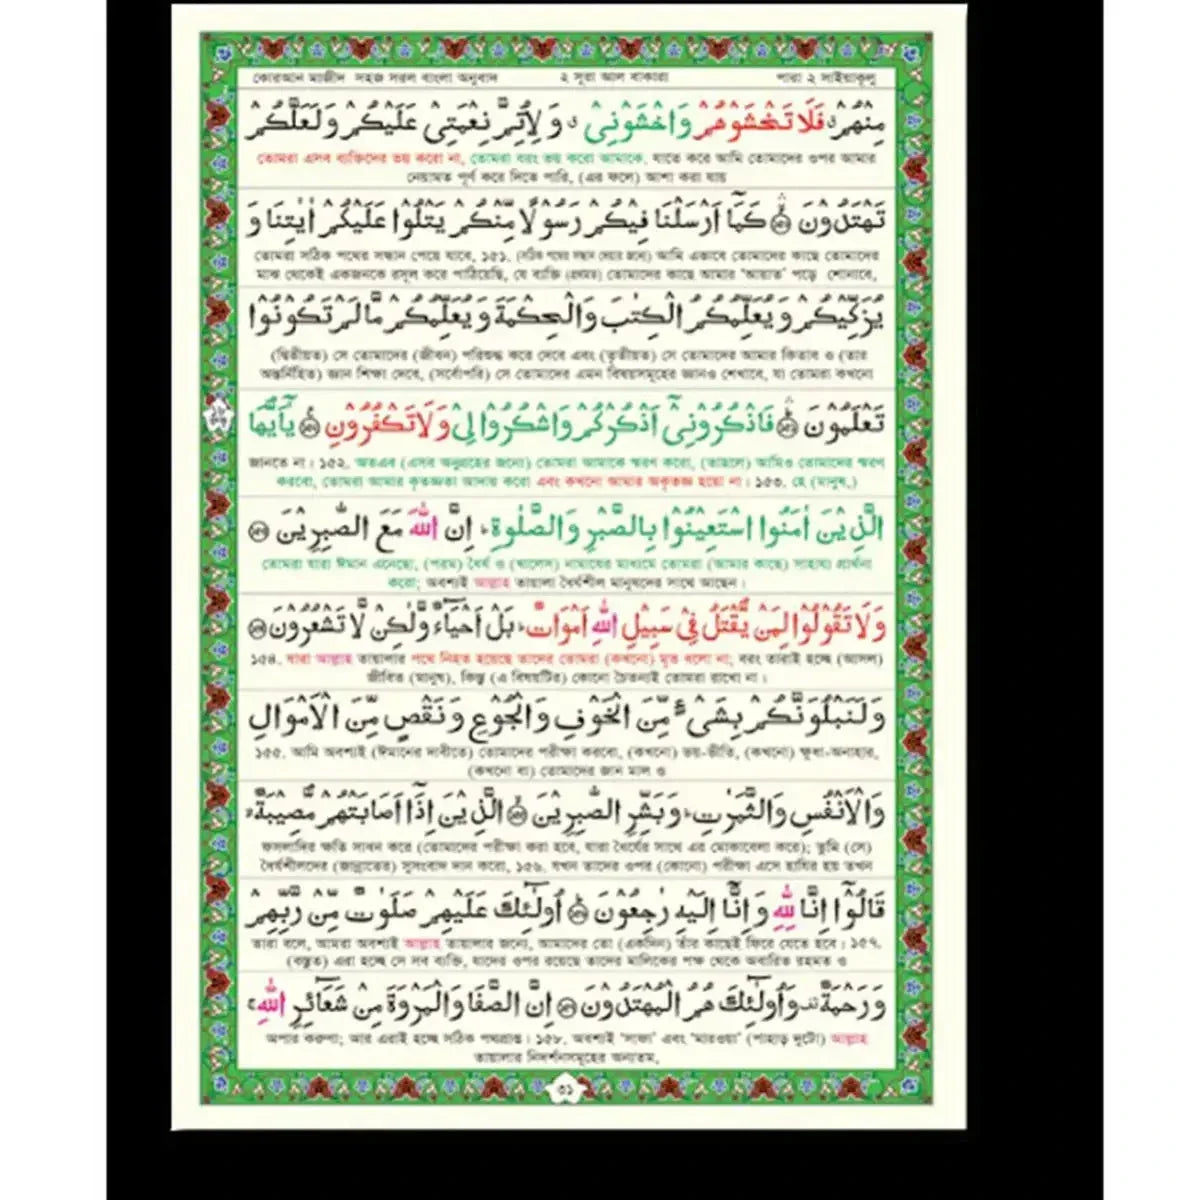 কোরআন মাজীদ সহজ সরল বাংলা অনুবাদ
২ সূরা আল বাকারা
পারা ২ সাইয়াকূলু
مِنْهُمْ فَلَا تَخْشَوْهُمْ وَاخْشَوْنِيْ وَلِاُتِمَّ نِعْمَتِيْ عَلَيْكُمْ وَلَعَلَّكُمْ
তোমরা এসব ব্যক্তিদের ভয় করো না, তোমরা বরং ভয় করো আমাকে, যাতে করে আমি তোমাদের ওপর আমার
নেয়ামত পূর্ণ করে দিতে পারি, (এর ফলে) আশা করা যায়
تَهْتَدُوْنَ كَمَآ اَرْسَلْنَا فِيْكُمْ رَسُوْلًا مِّنْكُمْ يَتْلُوْا عَلَيْكُمْ اٰيٰتِنَا وَ
তোমরা সঠিক পথের সন্ধান পেয়ে যাবে, ১৫১. (সঠিক পথের সন্ধান দেয়ার জন্যে) আমি এভাবে তোমাদের কাছে তোমাদের
মাঝ থেকেই একজনকে রসূল করে পাঠিয়েছি, যে ব্যক্তি (প্রথমত) তোমাদের কাছে আমার 'আয়াত' পড়ে শোনাবে,
يُزَكِّيْكُمْ وَيُعَلِّمُكُمُ الْكِتٰبَ وَالْحِكْمَةَ وَيُعَلِّمُكُمْ مَّا لَمْ تَكُوْنُوْا
(দ্বিতীয়ত) সে তোমাদের (জীবন) পরিশুদ্ধ করে দেবে এবং (তৃতীয়ত) সে তোমাদের আমার কিতাব ও (তার
অন্তর্নিহিত) জ্ঞান শিক্ষা দেবে, (সর্বোপরি) সে তোমাদের এমন বিষয়সমূহের জ্ঞানও শেখাবে, যা তোমরা কখনো
تَعْلَمُوْنَ فَاذْكُرُوْنِيْٓ اَذْكُرْكُمْ وَاشْكُرُوْا لِيْ وَلَا تَكْفُرُوْنِ يٰٓاَيُّهَا
জানতে না। ১৫২. অতএব (এসব অনুগ্রহের জন্যে) তোমরা আমাকে স্মরণ করো, (তাহলে) আমিও তোমাদের স্মরণ
করবো, তোমরা আমার কৃতজ্ঞতা আদায় করো এবং কখনো আমার অকৃতজ্ঞ হয়ো না। ১৫৩. হে (মানুষ,)
الَّذِيْنَ اٰمَنُوا اسْتَعِيْنُوْا بِالصَّبْرِ وَالصَّلٰوةِ اِنَّ اللّٰهَ مَعَ الصّٰبِرِيْنَ
তোমরা যারা ঈমান এনেছো, (পরম) ধৈর্য ও (খালেস) নামাযের মাধ্যমে তোমরা (আমার কাছে) সাহায্য প্রার্থনা
করো; অবশ্যই আল্লাহ তায়ালা ধৈর্যশীল মানুষদের সাথে আছেন।
وَلَا تَقُوْلُوْا لِمَنْ يُّقْتَلُ فِيْ سَبِيْلِ اللّٰهِ اَمْوَاتٌ بَلْ اَحْيَآءٌ وَّلٰكِنْ لَّا تَشْعُرُوْنَ
১৫৪. যারা আল্লাহ তায়ালার পথে নিহত হয়েছে তাদের তোমরা (কখনো) মৃত বলো না; বরং তারাই হচ্ছে (আসল)
জীবিত (মানুষ), কিন্তু (এ বিষয়টির) কোনো চৈতন্যই তোমরা রাখো না।
وَلَنَبْلُوَنَّكُمْ بِشَيْءٍ مِّنَ الْخَوْفِ وَالْجُوْعِ وَنَقْصٍ مِّنَ الْاَمْوَالِ
১৫৫. আমি অবশ্যই (ঈমানের দাবীতে) তোমাদের পরীক্ষা করবো, (কখনো) ভয়-ভীতি, (কখনো) ক্ষুধা-অনাহার,
(কখনো বা) তোমাদের জান মাল ও
وَالْاَنْفُسِ وَالثَّمَرٰتِ وَبَشِّرِ الصّٰبِرِيْنَ الَّذِيْنَ اِذَآ اَصَابَتْهُمْ مُّصِيْبَةٌ
ফসলাদির ক্ষতি সাধন করে (তোমাদের পরীক্ষা করা হবে, যারা ধৈর্যের সাথে এর মোকাবেলা করে); তুমি (সে)
ধৈর্যশীলদের (জান্নাতের) সুসংবাদ দান করো, ১৫৬. যখন তাদের ওপর (কোনো) পরীক্ষা এসে হাযির হয় তখন
قَالُوْٓا اِنَّا لِلّٰهِ وَاِنَّآ اِلَيْهِ رٰجِعُوْنَ اُولٰٓئِكَ عَلَيْهِمْ صَلَوٰتٌ مِّنْ رَّبِّهِمْ
তারা বলে, আমরা অবশ্যই আল্লাহ তায়ালার জন্যে, আমাদের তো (একদিন) তাঁর কাছেই ফিরে যেতে হবে। ১৫৭.
(বস্তুত) এরা হচ্ছে সে সব ব্যক্তি, যাদের ওপর রয়েছে তাদের মালিকের পক্ষ থেকে অবারিত রহমত ও
وَرَحْمَةٌ وَاُولٰٓئِكَ هُمُ الْمُهْتَدُوْنَ اِنَّ الصَّفَا وَالْمَرْوَةَ مِنْ شَعَآئِرِ اللّٰهِ
অপার করুণা; আর এরাই হচ্ছে সঠিক পথপ্রাপ্ত। ১৫৮. অবশ্যই 'সাফা' এবং 'মারওয়া' (পাহাড় দুটো) আল্লাহ
তায়ালার নিদর্শনসমূহের অন্যতম,
৩১